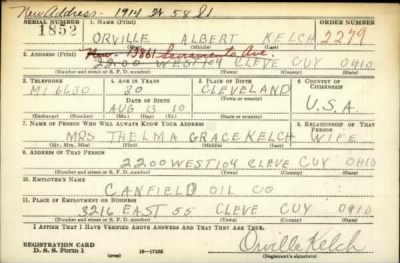 New Address - 1914 W. 58 St
SERIAL NUMBER 1. NAME (Print) ORDER NUMBER
1852 ORVILLE ALBERT KELCH 2279
(First) (Middle) (Last)
2. ADDRESS (Print) New - 13861 Sacramento Ave.
2200 WEST 104 CLEVE CUY OHIO
(Number and street or R. F. D. number) (Town) (County) (State)
3. TELEPHONE 4. AGE IN YEARS 5. PLACE OF BIRTH 6. COUNTRY OF CITIZENSHIP
MI 6630 30 CLEVELAND
DATE OF BIRTH (Town or county) U.S.A.
AUG 13 10
(Exchange) (Number) (Mo.) (Day) (Yr.) (State or country)
7. NAME OF PERSON WHO WILL ALWAYS KNOW YOUR ADDRESS 8. RELATIONSHIP OF THAT PERSON
MRS THELMA GRACE KELCH WIFE
(Mr., Mrs., Miss) (First) (Middle) (Last)
9. ADDRESS OF THAT PERSON
2200 WEST 104 CLEVE CUY OHIO
(Number and street or R. F. D. number) (Town) (County) (State)
10. EMPLOYER'S NAME
CANFIELD OIL CO
11. PLACE OF EMPLOYMENT OR BUSINESS
3216 EAST 55 CLEVE CUY OHIO
(Number and street or R. F. D. number) (Town) (County) (State)
I AFFIRM THAT I HAVE VERIFIED ABOVE ANSWERS AND THAT THEY ARE TRUE.
REGISTRATION CARD Orville Kelch
D. S. S. Form 1 16-17105 (Registrant's signature)